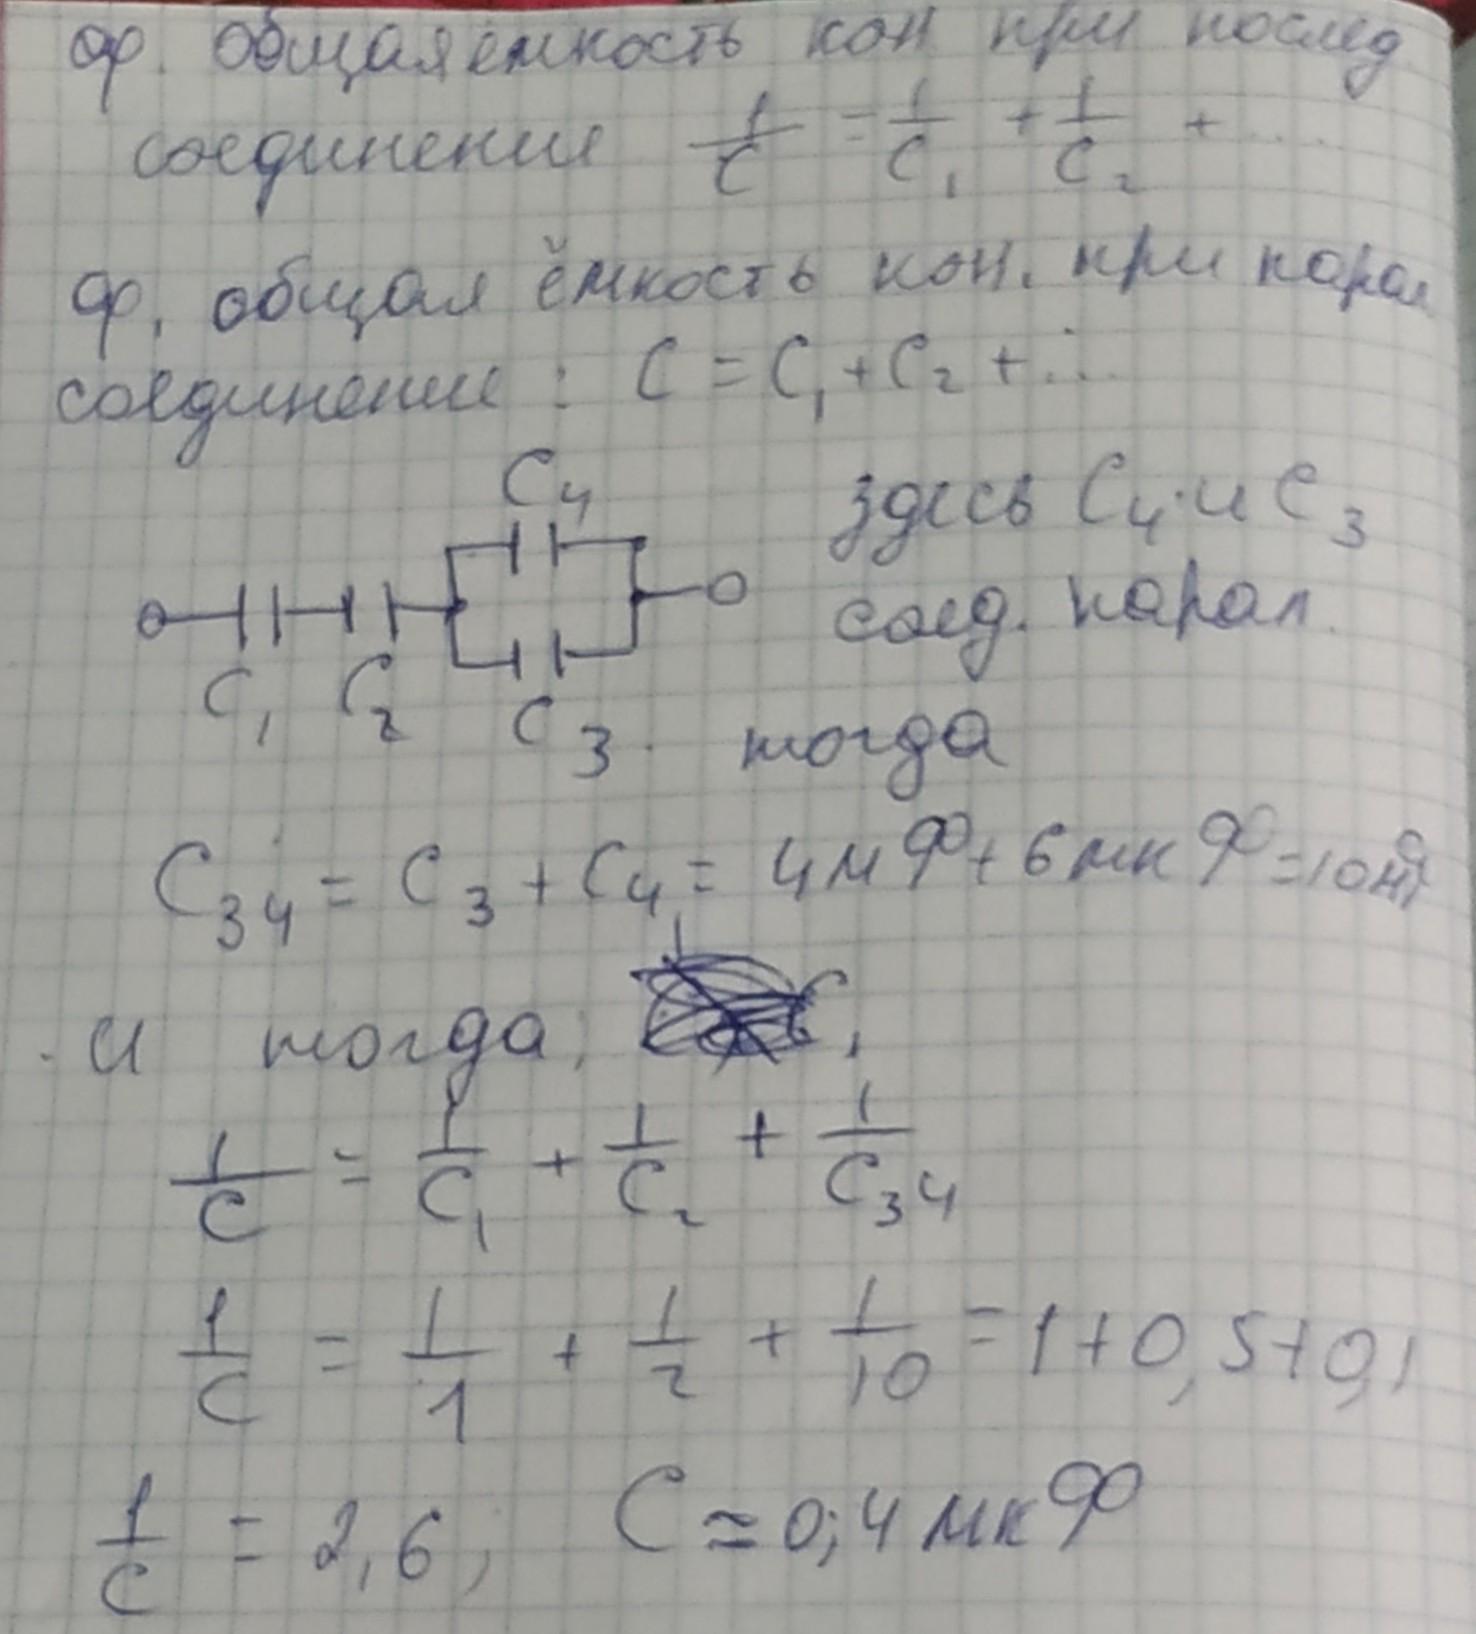 ф. общая ёмкость кон при послед
соединении 1/C = 1/C₁ + 1/C₂ + ...
ф. общая ёмкость кон. при парал
соединении: C = C₁ + C₂ + ...
C₄
здесь C₄ и C₃
соед. парал.
C₁ C₂ C₃
тогда
C₃₄ = C₃ + C₄ = 4мФ + 6мкФ = 10мФ
и тогда;
1/C = 1/C₁ + 1/C₂ + 1/C₃₄
1/C = 1/1 + 1/2 + 1/10 = 1+0,5+0,1
1/C = 2,6; C ≃ 0,4 мкФ